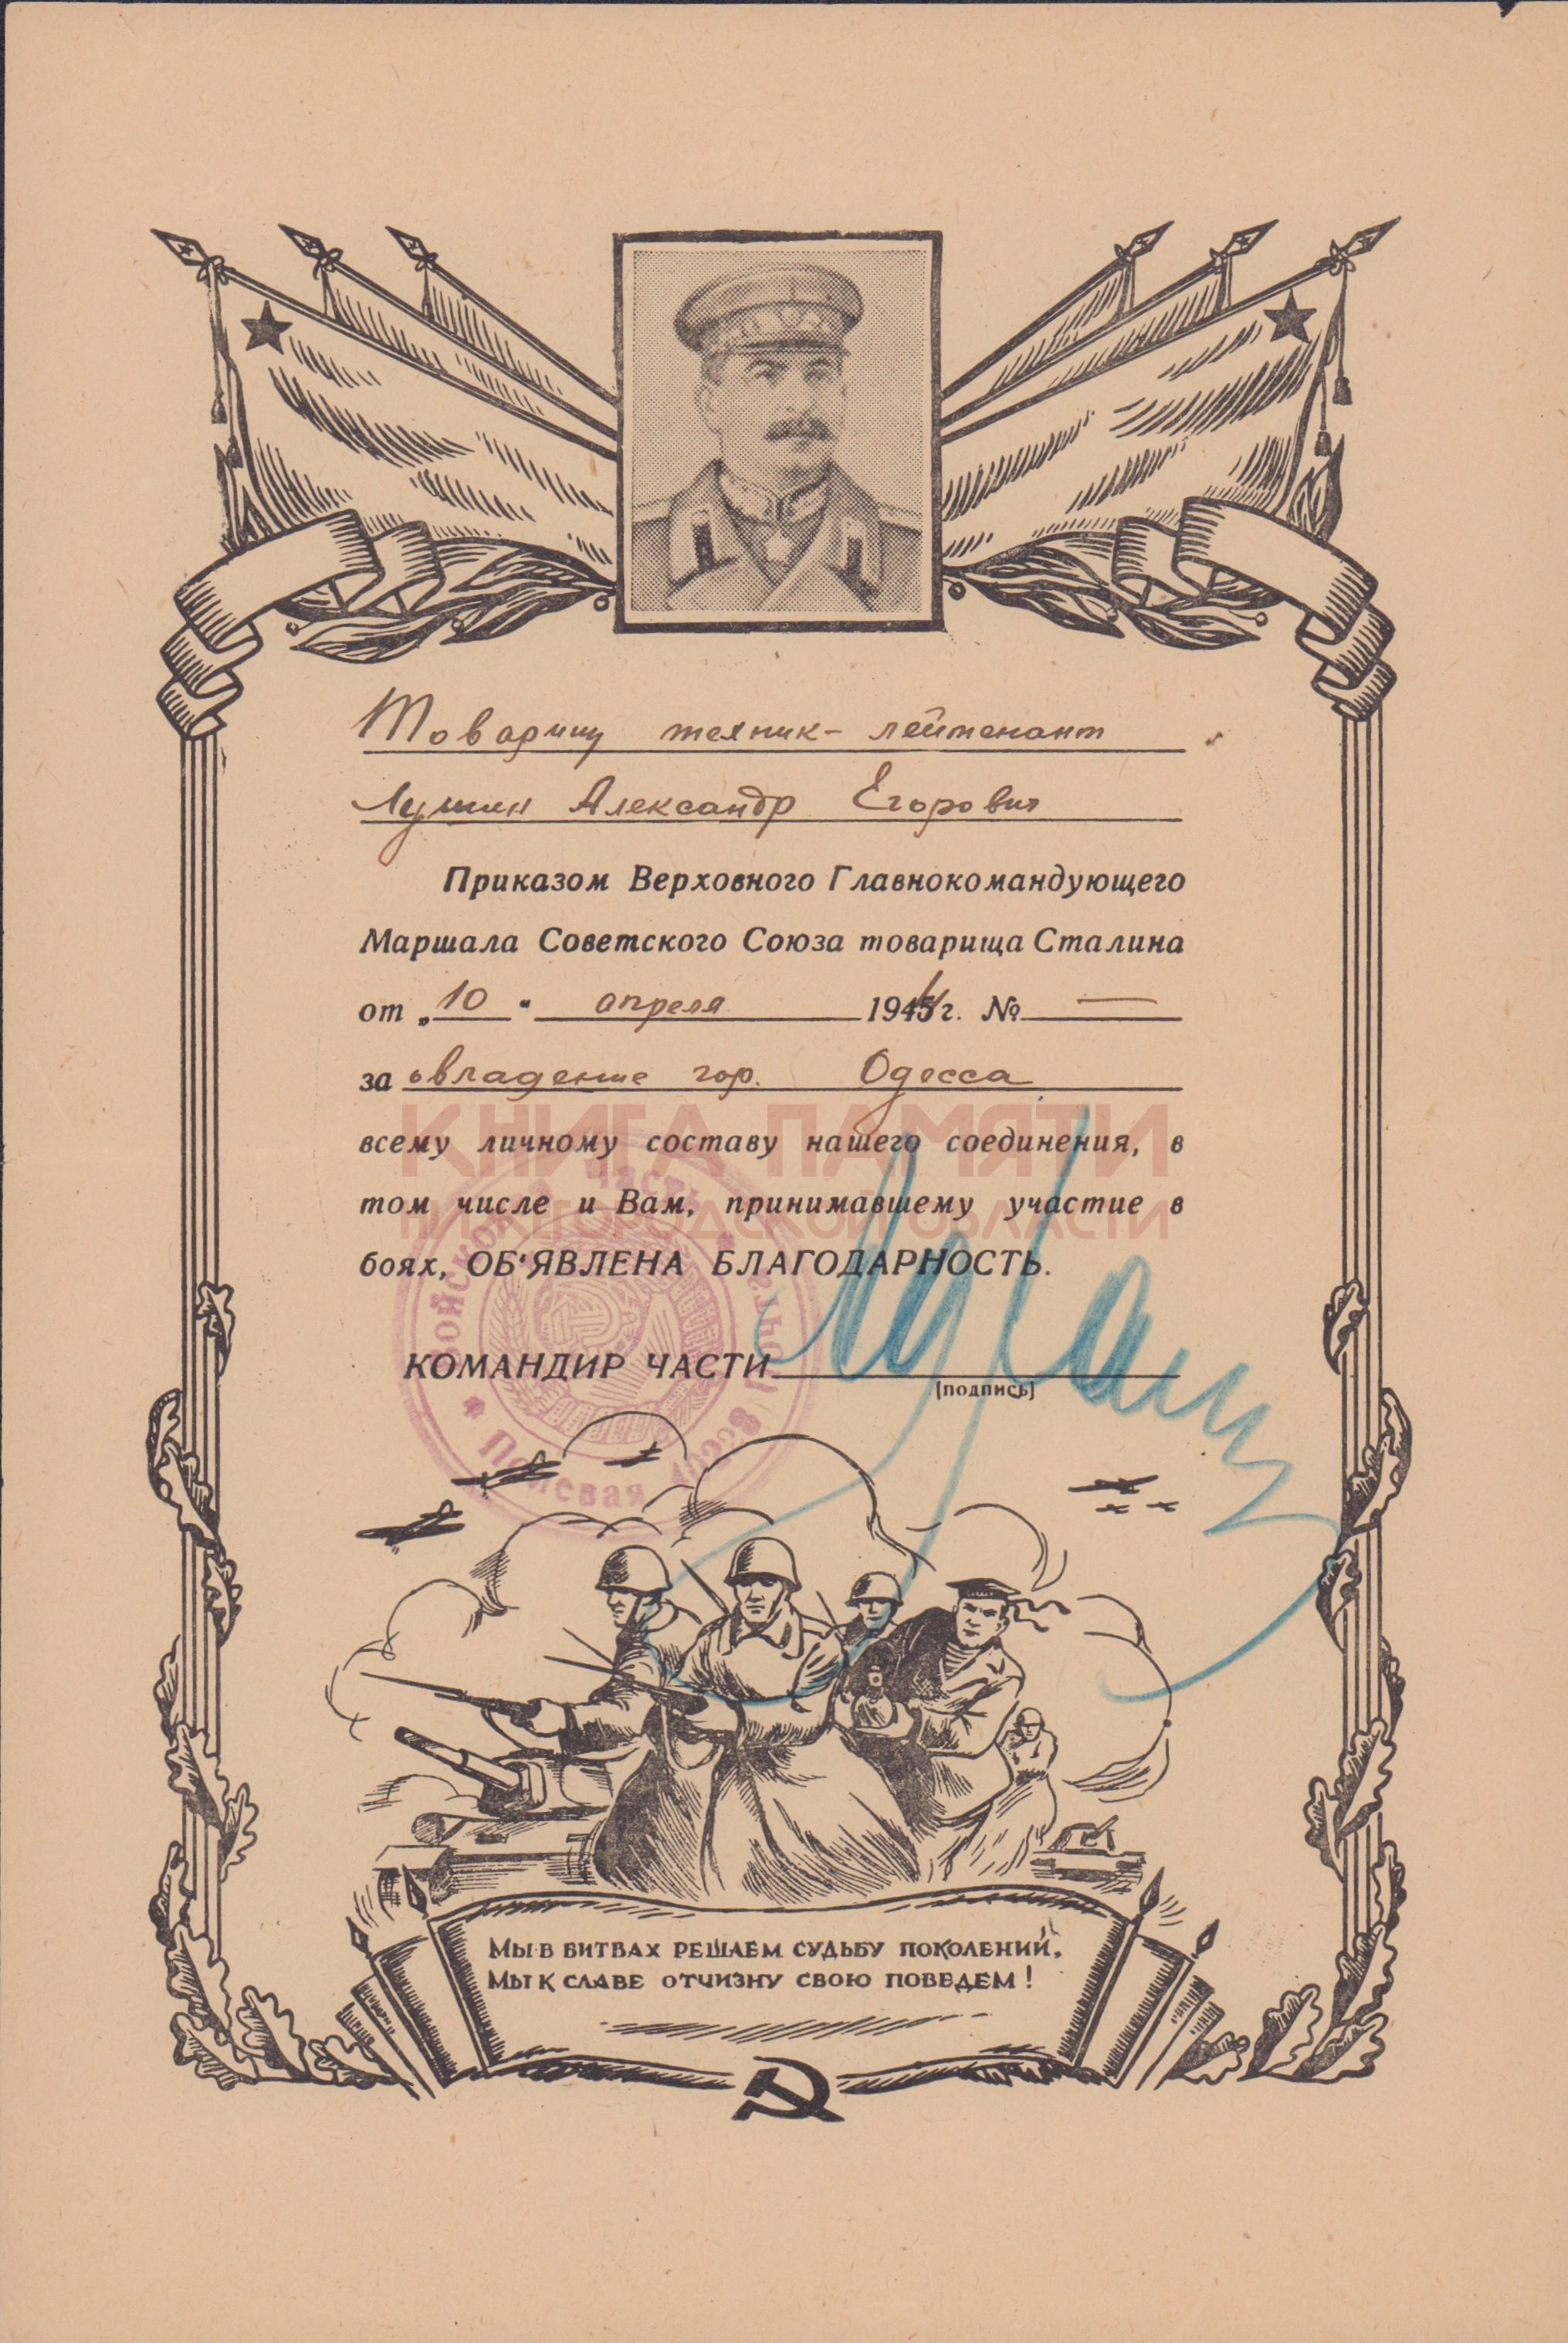 Товарищ техник-лейтенант
Лушин Александр Егорович
Приказом Верховного Главнокомандующего
Маршала Советского Союза товарища Сталина
от „10" апреля 1944г. № —
за овладение гор. Одесса
КНИГА ПАМЯТИ
всему личному составу нашего соединения, в
том числе и Вам, принимавшему участие в
НИЖЕГОРОДСКОЙ ОБЛАСТИ
боях, ОБ'ЯВЛЕНА БЛАГОДАРНОСТЬ.
КОМАНДИР ЧАСТИ
(подпись)
Полевая
МЫ В БИТВАХ РЕШАЕМ СУДЬБУ ПОКОЛЕНИЙ,
МЫ К СЛАВЕ ОТЧИЗНУ СВОЮ ПОВЕДЕМ!